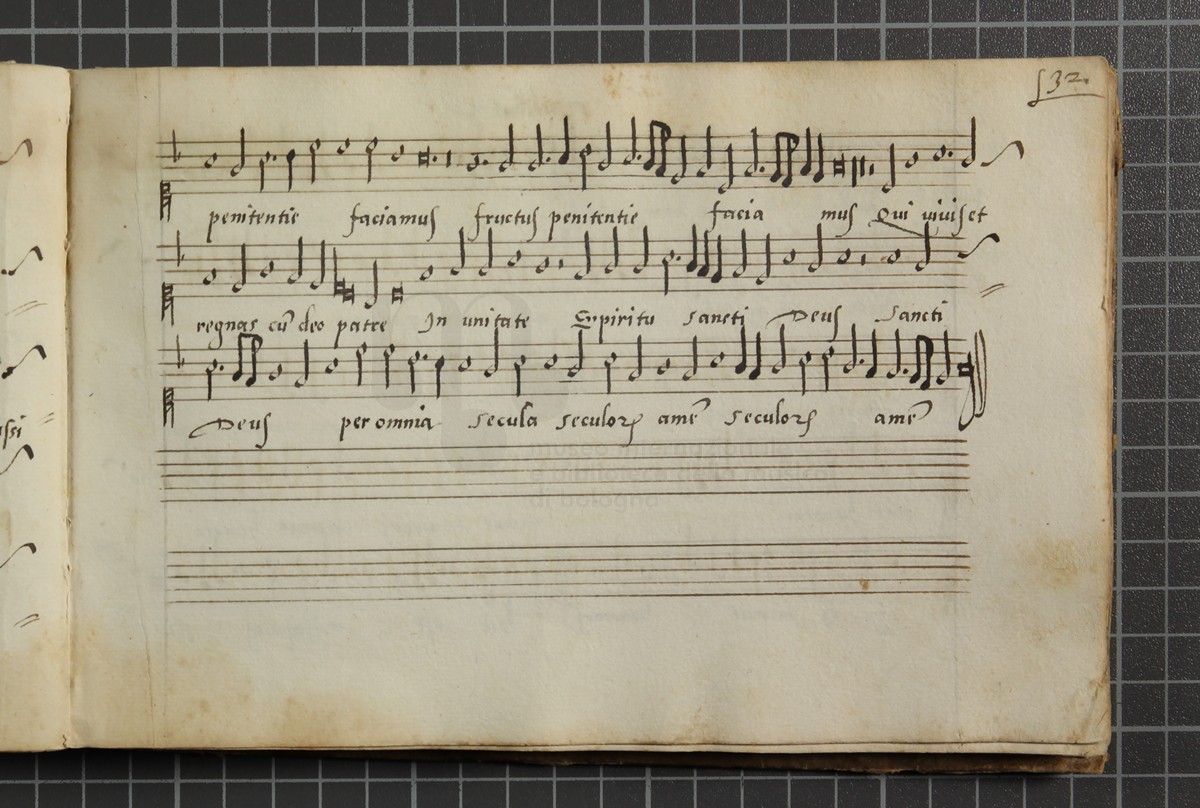 32.
penitentie faciamus fructus penitentie facia mus Qui viuis et
regnas cū deo patre In unitate Spiritu Sancti Deus Sancti
Deus per omnia Secula Seculorꝝ amē Seculorꝝ amē
museo internazionale
e biblioteca della musica
di bologna